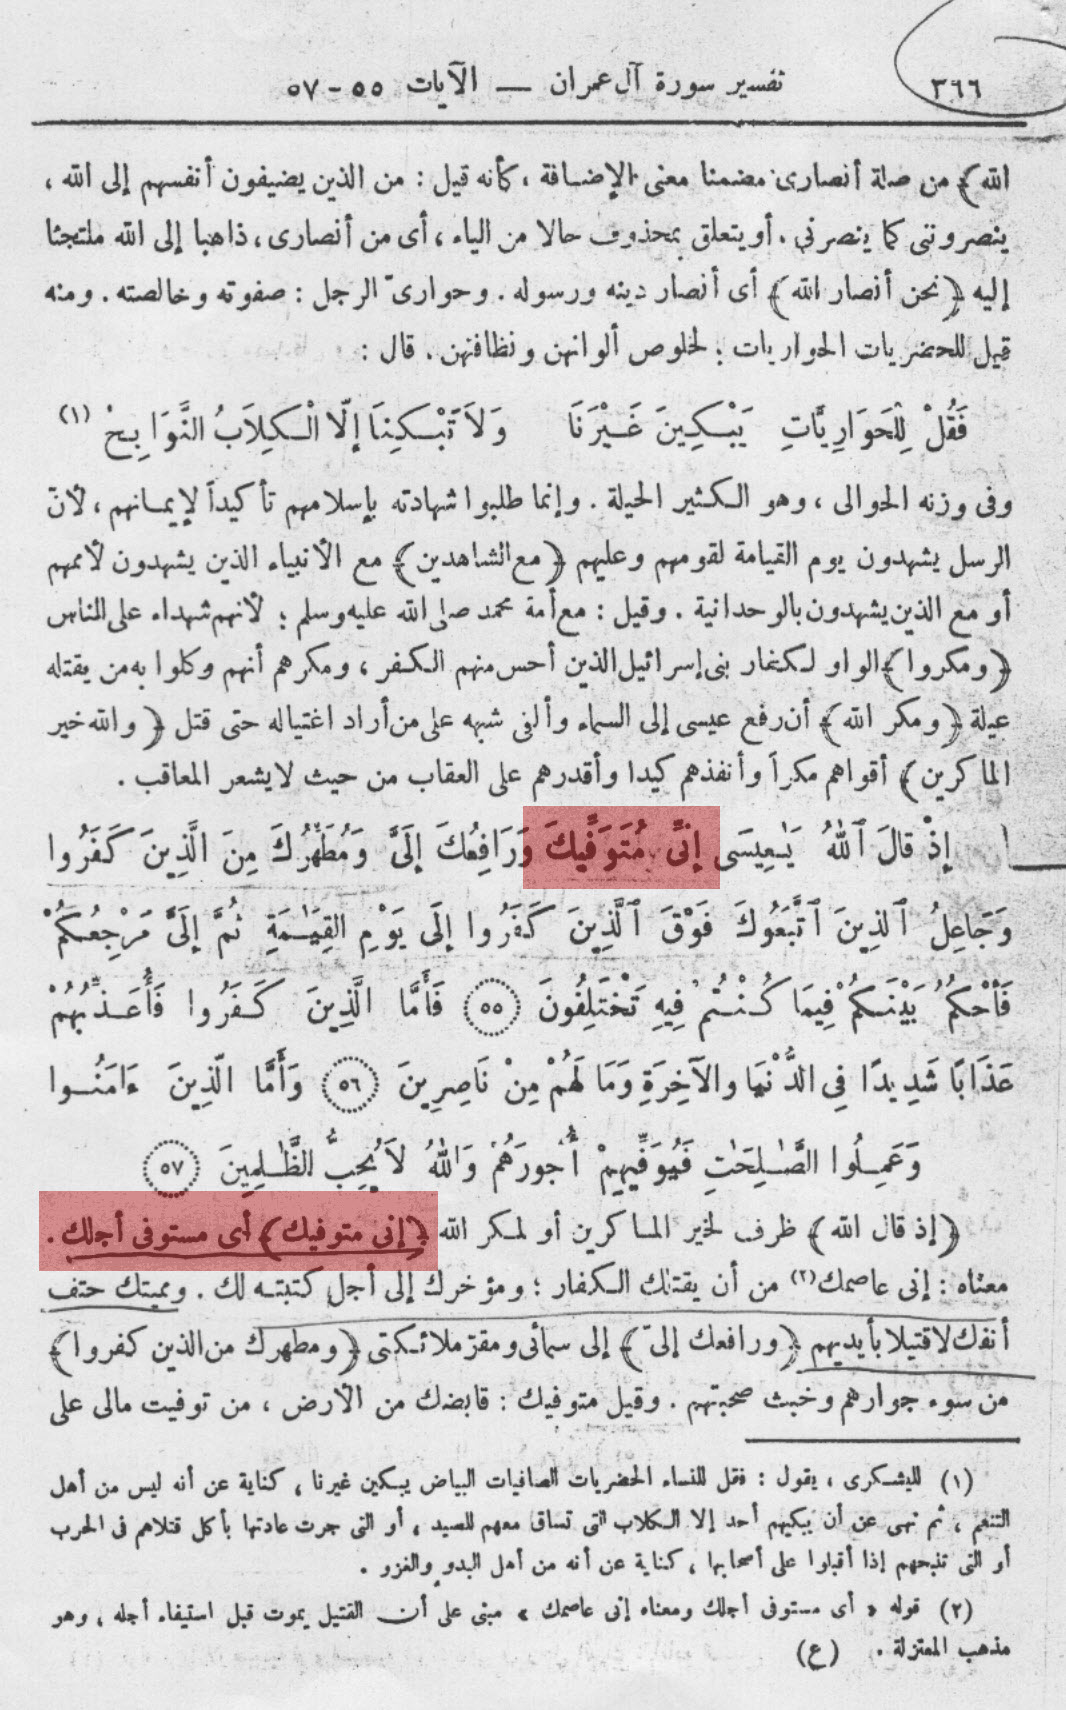 ٣٦٦ تفسير سورة آل عمران — الآيات ٥٥-٥٧
الله﴾ من صلة أنصارى مضمنا معنى الإضافة ، كأنه قيل : من الذين يضيفون أنفسهم إلى الله ،
ينصروننى كما ينصرنى . أو يتعلق بمحذوف حالا من الياء ، أى من أنصارى ، ذاهبا إلى الله ملتجئا
إليه ﴿نحن أنصار الله﴾ أى أنصار دينه ورسوله . وحوارىّ الرجل : صفوته وخالصته . ومنه
قيل للحضريات الحواريات ؛ لخلوص ألوانهن ونظافتهن . قال :
فَقُلْ لِلْحَوَارِيَّاتِ يَبْكِينَ غَيْرَنَا وَلاَ تَبْكِنَا إلّا الْكِلاَبُ النَّوَابِحُ (١)
وفى وزنه الحوالى ، وهو الكثير الحيلة . وإنما طلبوا شهادته بإسلامهم تأكيداً لإيمانهم ، لأنّ
الرسل يشهدون يوم القيامة لقومهم وعليهم ﴿مع الشاهدين﴾ مع الأنبياء الذين يشهدون لأممهم
أو مع الذين يشهدون بالوحدانية . وقيل : مع أمة محمد صلى الله عليه وسلم ؛ لأنهم شهداء على الناس
﴿ومكروا﴾ الواو لكفار بنى إسرائيل الذين أحس منهم الكفر ، ومكرهم أنهم وكلوا به من يقتله
غيلة ﴿ومكر الله﴾ أن رفع عيسى إلى السماء وألقى شبهه على من أراد اغتياله حتى قتل ﴿والله خير
الماكرين﴾ أقواهم مكراً وأنفذهم كيدا وأقدرهم على العقاب من حيث لا يشعر المعاقب .
إِذْ قَالَ ٱللهُ يَـٰعِيسَى إِنِّى مُتَوَفِّيكَ وَرَافِعُكَ إِلَىَّ وَمُطَهِّرُكَ مِنَ الَّذِينَ كَفَرُوا
وَجَاعِلُ ٱلَّذِينَ ٱتَّبَعُوكَ فَوْقَ ٱلَّذِينَ كَفَرُوا إِلَى يَوْمِ القِيَـٰمَةِ ثُمَّ إِلَىَّ مَرْجِعُكُمْ
فَأَحْكُمُ بَيْنَكُمْ فِيمَا كُنْتُمْ فِيهِ تَخْتَلِفُونَ ٥٥ فَأَمَّا الَّذِينَ كَفَرُوا فَأُعَذِّبُهُمْ
عَذَابًا شَدِيدًا فِى الدُّنْيَا والآخِرَةِ وَمَا لَهُمْ مِنْ نَاصِرِينَ ٥٦ وَأَمَّا الَّذِينَ ءَامَنُوا
وَعَمِلُوا الصَّـٰلِحَـٰتِ فَيُوَفِّيهِمْ أُجُورَهُمْ وَاللهُ لاَ يُحِبُّ الظَّـٰلِمِينَ ٥٧
﴿إذ قال الله﴾ ظرف لخير الماكرين أو لمكر الله ﴿إنى متوفيك﴾ أى مستوفى أجلك .
معناه : إنى عاصمك(٢) من أن يقتلك الكفار ؛ ومؤخرك إلى أجل كتبته لك . ومميتك حتف
أنفك لا قتيلا بأيديهم ﴿ورافعك إلىّ﴾ إلى سمائى ومقرّ ملائكتى ﴿ومطهرك من الذين كفروا﴾
من سوء جوارهم وخبث صحبتهم . وقيل متوفيك : قابضك من الأرض ، من توفيت مالى على
(١) لليشكرى ، يقول : فقل للنساء الحضريات الصافيات البياض يبكين غيرنا ، كناية عن أنه ليس من أهل
التنعم ، ثم نهى عن أن يبكيهم أحد إلا الكلاب التى تساق معهم للصيد ، أو التى جرت عادتها بأكل قتلاهم فى الحرب
أو التى تنبحهم إذا أقبلوا على أصحابها ، كناية عن أنه من أهل البدو والغزو .
(٢) قوله « أى مستوفى أجلك ومعناه إنى عاصمك » مبنى على أن القتيل يموت قبل استيفاء أجله ، وهو
مذهب المعتزلة . (ع)